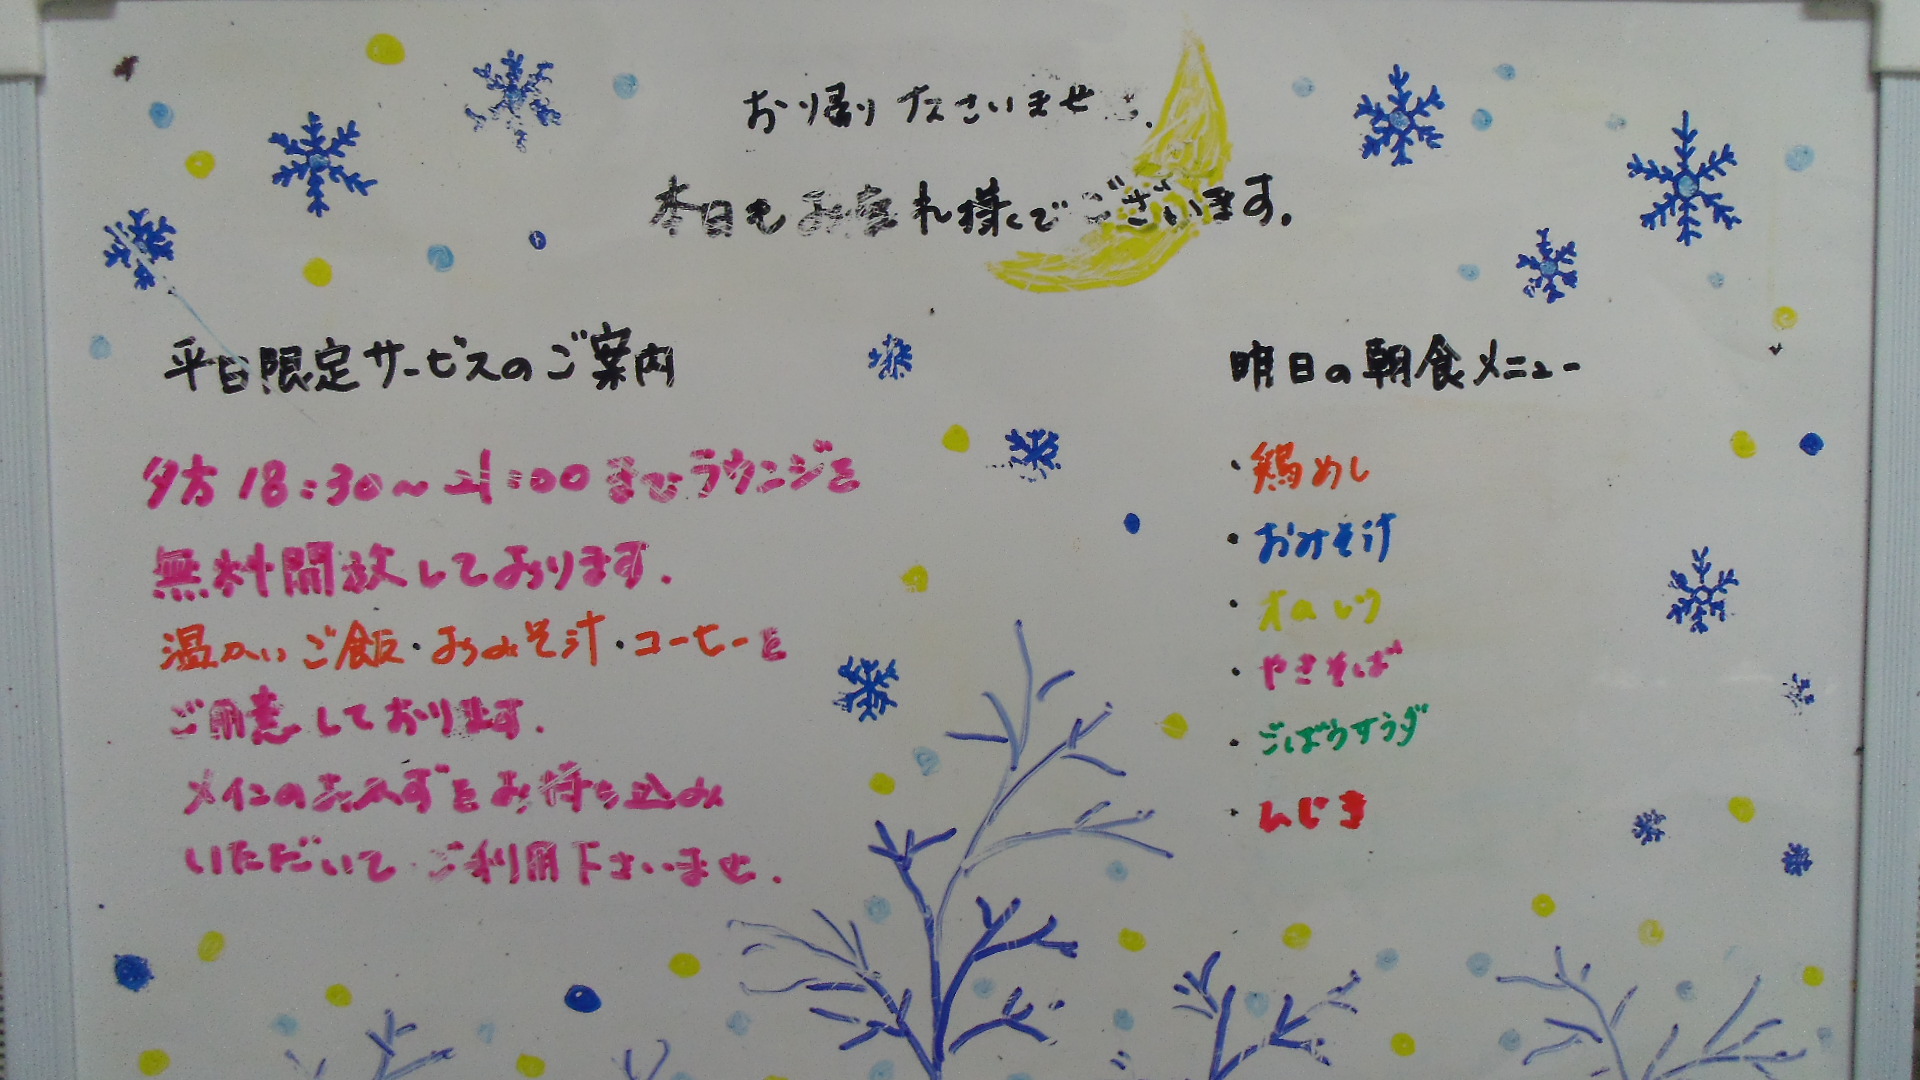 おり帰りなさいませ.
本日もお疲れ様でございます。
平日限定サービスのご案内
夕方 18:30～21:00までラウンジを
無料開放しております.
温かいご飯・おみそ汁・コーヒーを
ご用意しております.
メインのおかずをお持ち込み
いただいて ご利用下さいませ.
明日の朝食メニュー
・鶏めし
・おみそ汁
・やきそば
・ごぼうサラダ
・ひじき